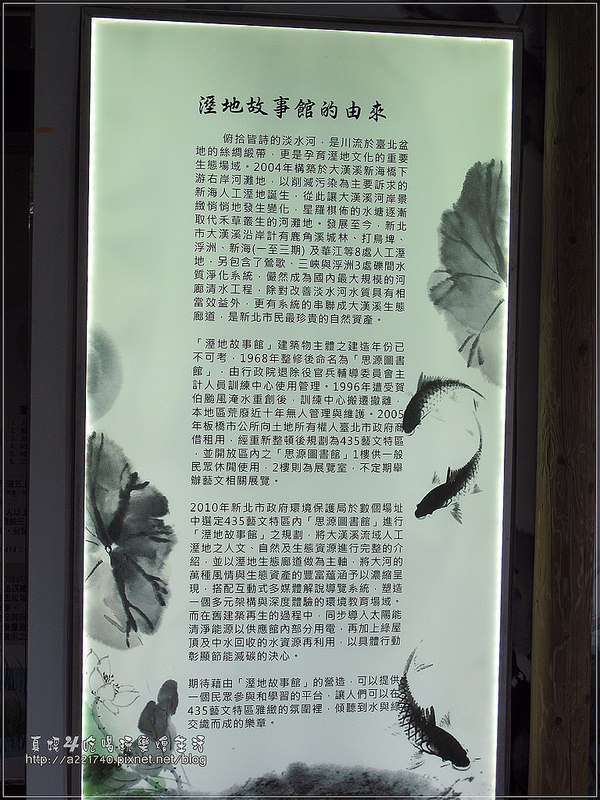 溼地故事館的由來
俯拾皆詩的淡水河，是川流於臺北盆
地的絲綢緞帶，更是孕育溼地文化的重要
生態場域。2004年構築於大漢溪新海橋下
游右岸河灘地，以削減污染為主要訴求的
新海人工溼地誕生，從此讓大漢溪河岸景
緻悄悄地發生變化，星羅棋佈的水塘逐漸
取代禾草叢生的河灘地。發展至今，新北
市大漢溪沿岸計有鹿角溪城林、打鳥埤、
浮洲、新海(一至三期) 及華江等8處人工溼
地，另包含了鶯歌、三峽與浮洲3處礫間水
質淨化系統，儼然成為國內最大規模的河
廊清水工程，除對改善淡水河水質具有相
當效益外，更有系統的串聯成大漢溪生態
廊道，是新北市民最珍貴的自然資產。
「溼地故事館」建築物主體之建造年份已
不可考，1968年整修後命名為「思源圖書
館」，由行政院退除役官兵輔導委員會主
計人員訓練中心使用管理。1996年遭受賀
伯颱風淹水重創後，訓練中心搬遷撤離，
本地區荒廢近十年無人管理與維護。2005
年板橋市公所向土地所有權人臺北市政府商
借租用，經重新整頓後規劃為435藝文特區
，並開放區內之「思源圖書館」1樓供一般
民眾休閒使用，2樓則為展覽室，不定期舉
辦藝文相關展覽。
2010年新北市政府環境保護局於數個場址
中選定435藝文特區內「思源圖書館」進行
「溼地故事館」之規劃，將大漢溪流域人工
溼地之人文、自然及生態資源進行完整的介
紹，並以溼地生態廊道做為主軸，將大河的
萬種風情與生態資產的豐富蘊涵予以濃縮呈
現，搭配互動式多媒體解說導覽系統，塑造
一個多元架構與深度體驗的環境教育場域。
而在舊建築再生的過程中，同步導入太陽能
清淨能源以供應館內部分用電，再加上綠屋
頂及中水回收的水資源再利用，以具體行動
彰顯節能減碳的決心。
期待藉由「溼地故事館」的營造，可以提供
一個民眾參與和學習的平台，讓人們可以在
435藝文特區雅緻的氛圍裡，傾聽到水與綠
交織而成的樂章。
http://a221740.pixnet.net/blog